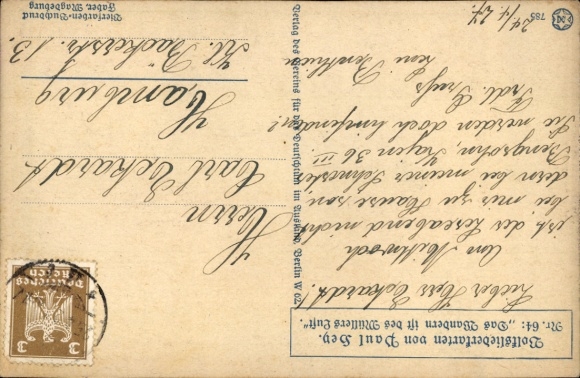 Volksliederkarten von Paul Hey.
Nr. 64: „Das Wandern ist des Müllers Lust“.
Lieber Herr Eckardt!
Am Mittwoch
ist der Leseabend nicht
bei mir zu Hause, son
dern bei meiner Schwester
36 III.
Sie werden doch hinfinden!
Frdl. Gruß
24/4. 27.
785
Verlag des Vereins für das Deutschtum im Ausland, Berlin W 62
Herrn
Carl Eckardt
Hamburg
Kl. Bäckerstr. 13.
Vierfarben-Buchdruck
Faber, Magdeburg
Deutsches
Reich
3
3